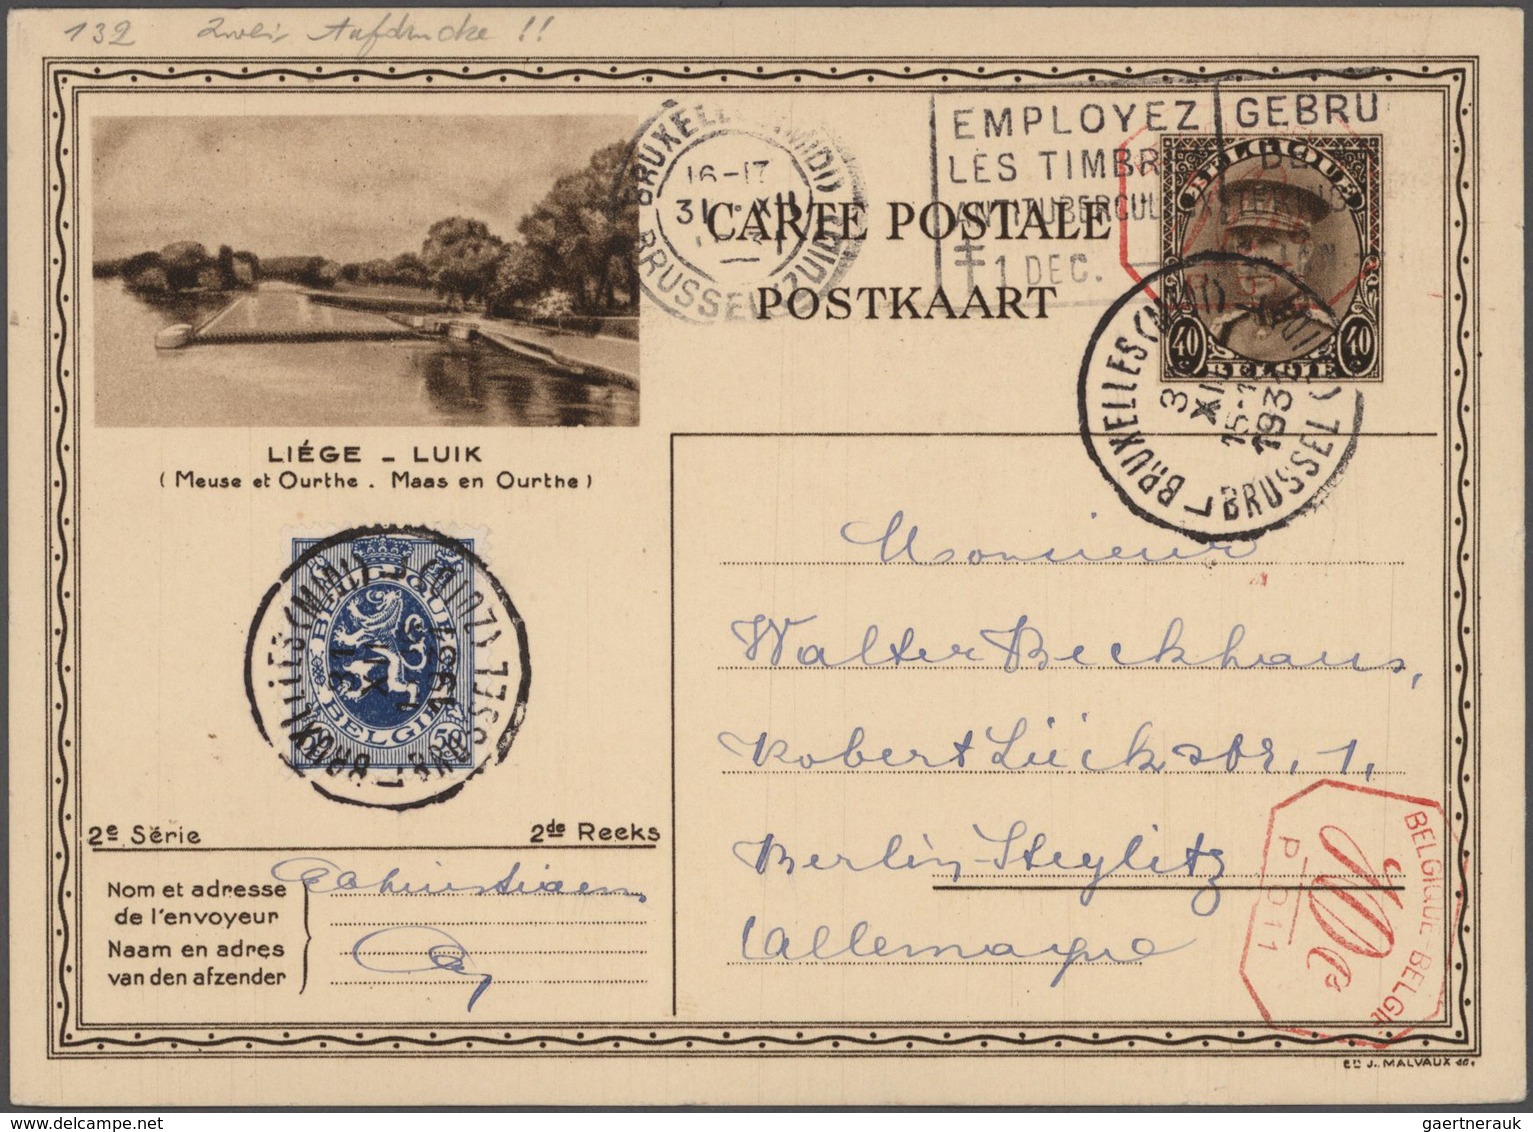 132 Zwei Aufdrucke !!
BRUXELLES (MIDI)
16-17
31 XII
BRUSSEL (ZUID)
EMPLOYEZ
LES TIMBR
ANTITUBERCUL
1 DEC.
GEBRU
CARTE POSTALE
POSTKAART
BELGIQUE
40 40
BELGIE
BRUXELLES
3
XII
15-1
193
BRUSSEL
LIÉGE - LUIK
(Meuse et Ourthe. Maas en Ourthe)
BELGIQUE
BELGIË
50
BRUXELLES (MIDI)
31
XII
BRUSSEL (ZUID)
Monsieur
Walter Beckhaus,
Robert Lückstr. 1,
Berlin-Steglitz
Allemagne
2e Série 2de Reeks
Nom et adresse
de l'envoyeur
Naam en adres
van den afzender
Christiaens
BELGIQUE-BELGIË
P 011
ED J. MALVAUX
gaertnerauk @ delcampe.net